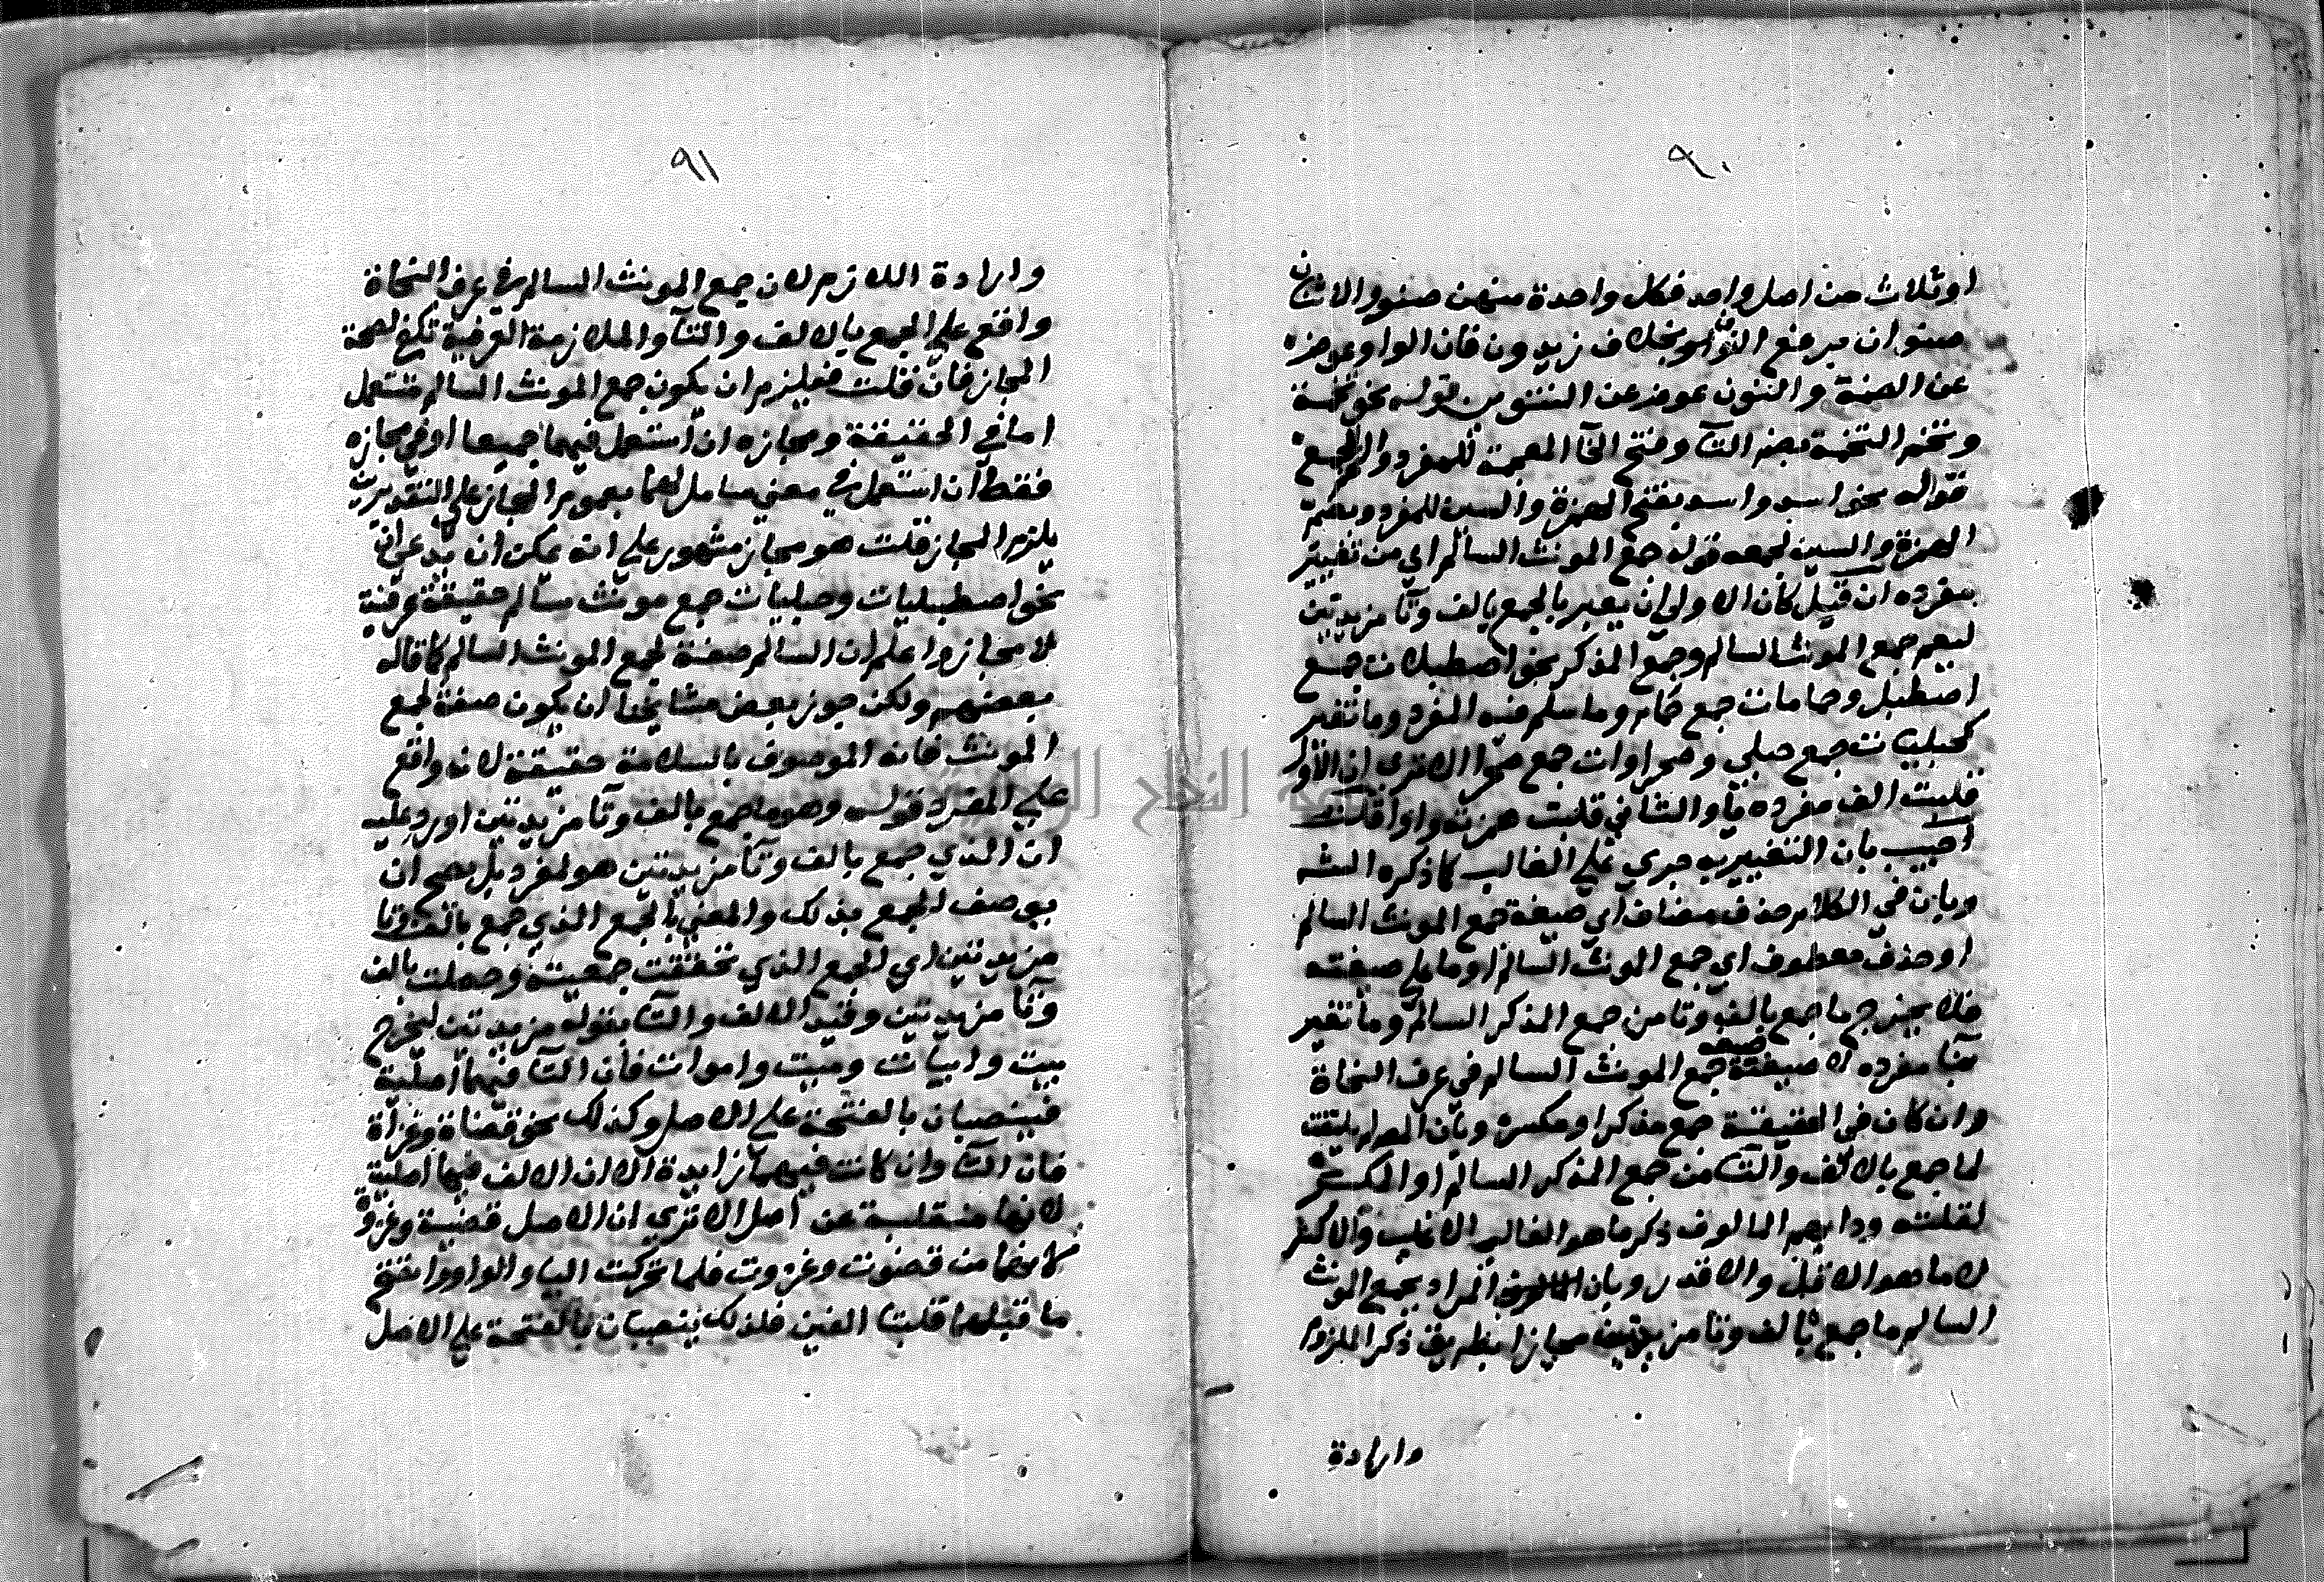 ٩٠
او ثلاث من اصل واحد فكل واحدة منهن صنو والاثنان
صنوان برفع النون بخلاف زيدون فان الواو عوض
عن الضمة والنون عوض عن التنوين قوله نحو تخمة
وتخم التخمة بضم التآ وفتح الخآ المعجمة للمفرد والجمع
قوله نحو اسد واسد بفتح الهمزة والسين للمفرد وبضم
الهمزة والسين لجمعه قوله جمع المونث السالم اي من تغيير
مفرده ان قيل كان الاولي ان يعبر بالجمع بالف وتآ مزيدتين
ليعم جمع المونث السالم وجمع المذكر نحو اصطبلات جمع
اصطبل وحامات جمع حام وما سلم فيه المفرد وما تغير
كحبليات جمع حبلي وصحراوات جمع صحرا الا تري ان الاول
قلبت الف مفرده يآ والثاني قلبت همزته واوا قلت
اجيب بان التعبير به جري علي الغالب كما ذكره الشه
وبان في الكلام حذف مضاف اي صيغة جمع المونث السالم
او حذف معطوف اي جمع المونث السالم او ما علي صيغته
فلا يخرج ما جمع بالف وتا من جمع المذكر السالم وما تغير
مفرده لا صيغة جمع المونث السالم في عرف النحاة
وان كان في الحقيقة جمع مذكر او مكسر وبان لم يلتفت
لما جمع بالالف والتآ من جمع المذكر السالم او المكسر
لقلته ودابهم المالوف ذكر ما هو الغالب الاغلب والاكثر
لا ما هو الاقل والاقدر وبان المراد بجمع المونث
السالم ما جمع بالف وتا مزيدتين مجازا بطريق ذكر الملزوم
وارادة
٩١
وارادة اللازم لان جمع المونث السالم في عرف النحاة
واقع علي الجمع بالالف والتآ والملازمة العرفية تكفي لصحة
المجاز فان قلت فيلزم ان يكون جمع المونث السالم مستعمل
اما في الحقيقة ومجازه ان استعمل فيهما جميعا او في مجازه
فقط ان استعمل في معني شامل لهما بعموم المجاز علي التقديرين
يلزم المجاز قلت هو مجاز مشهور علي انه يمكن ان يدعي ان
نحو اصطبليات وحبليات جمع مونث سالم حقيقة عرفية
لا مجاز واعلم ان السالم صفة لجمع المونث السالم كما قاله
بعضهم ولكن جوز بعض مشايخنا ان يكون صفة لجمع
المونث فانه الموصوف بالسلامة حقيقة لانه واقع
علي المفرد قوله وهو ما جمع بالف وتآ مزيدتين اورد عليه
ان الذي جمع بالف وتآ مزيدتين هو المفرد بل يصح ان
يوصف الجمع بذلك والمعني بالجمع الذي جمع بالف وتا
مزيدتين اي الجمع الذي تحققت جمعيته وحصلت بالف
وتآ مزيدتين وقيد الالف والتآ بقوله مزيدتين ليخرج
بيت وابيات وميت واموات فان التآ فيهما اصلية
فينصبان بالفتحة علي الاصل وكذلك نحو قضاة وغزاة
فان التآ وان كانت فيهما زايدة الا ان الالف فيها اصلية
لانها منقلبة عن اصل الا تري ان الاصل قضية وغزوة
لانهما من قضيت وغزوت فلما تحركت اليا والواو وانفتح
ما قبلهما قلبتا الفين فلذلك ينصبان بالفتحة علي الاصل